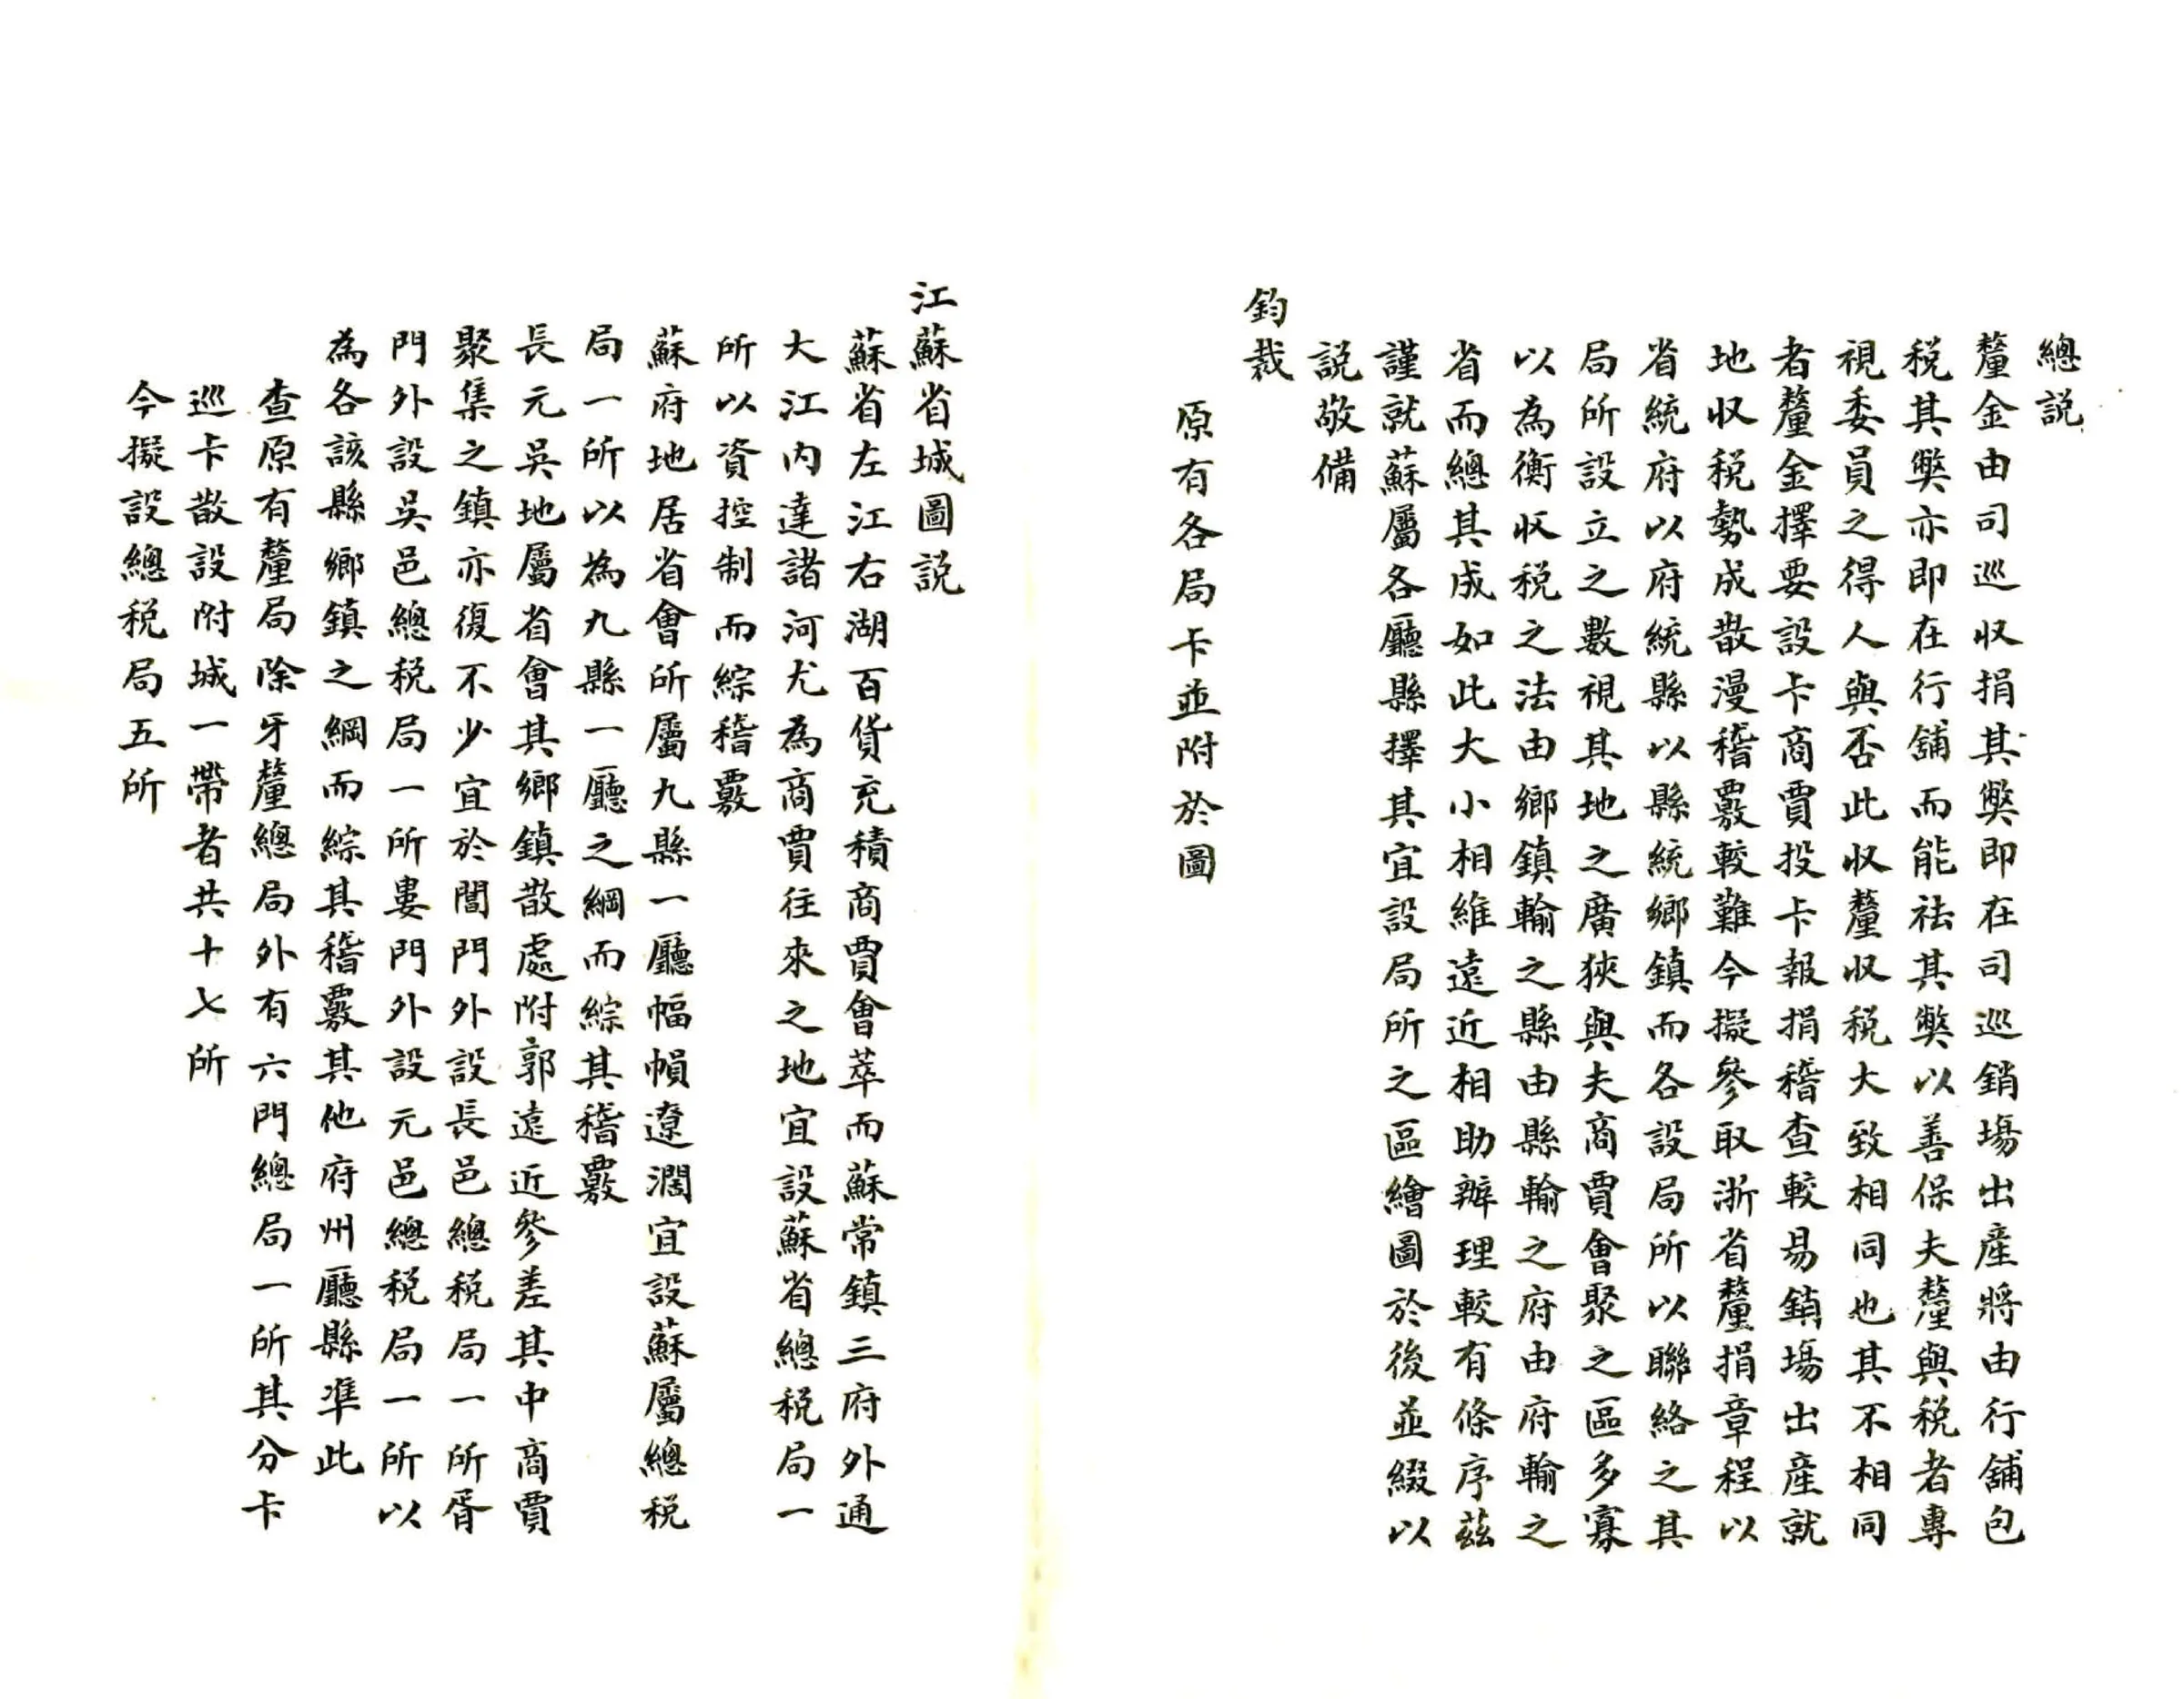 總説
釐金由司巡収捐其獘即在司巡銷塲出産將由行舖包
税其獘亦即在行舖而能祛其獘以善保夫釐與税者專
視委員之得人與否此収釐収税大致相同也其不相同
者釐金擇要設卡商賈投卡報捐稽查較易銷塲出産就
地収税勢成散漫稽覈較難今擬參取浙省釐捐章程以
省統府以府統縣以縣統鄉鎮而各設局所以聯絡之其
局所設立之數視其地之廣狹與夫商賈會聚之區多寡
以為衡収税之法由鄉鎮輸之縣由縣輸之府由府輸之
省而總其成如此大小相維遠近相助辦理較有條序茲
謹就蘇屬各廳縣擇其宜設局所之區繪圖於後並綴以
説敬備
鈞裁
原有各局卡並附於圖
江蘇省城圖説
蘇省左江右湖百貨充積商賈會萃而蘇常鎮三府外通
大江内達諸河尤為商賈往來之地宜設蘇省總税局一
所以資控制而綜稽覈
蘇府地居省會所屬九縣一廳幅幀遼濶宜設蘇屬總税
局一所以為九縣一廳之綱而綜其稽覈
長元吳地屬省會其鄉鎮散處附郭遠近參差其中商賈
聚集之鎮亦復不少宜於閶門外設長邑總税局一所胥
門外設吳邑總税局一所婁門外設元邑總税局一所以
為各該縣鄉鎮之綱而綜其稽覈其他府州廳縣準此
查原有釐局除牙釐總局外有六門總局一所其分卡
巡卡散設附城一帶者共十七所
今擬設總税局五所